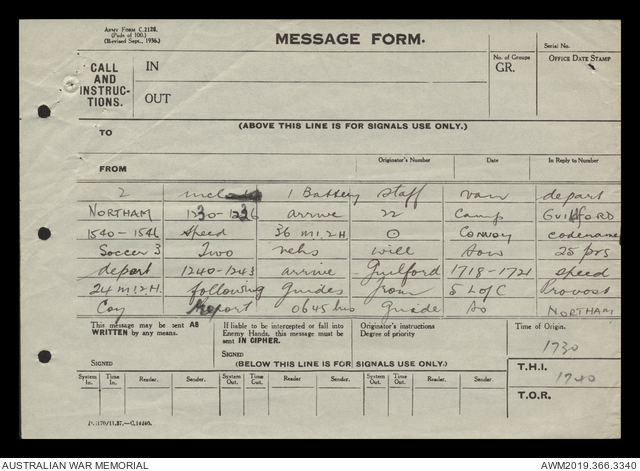 ARMY FORM C.2128.
(Pads of 100.)
(Revised Sept., 1936.)
MESSAGE FORM.
Serial No.
CALL AND INSTRUC- TIONS.
IN
OUT
No. of Groups
GR.
OFFICE DATE STAMP
(ABOVE THIS LINE IS FOR SIGNALS USE ONLY.)
TO
FROM
Originator's Number
Date
In Reply to Number
2 1 Battery staff van depart
NORTHAM 1230-1236 arrive 22 Camp GUILFORD
1540-1546 speed 36 M.I.2.H. O Convoy codename
Soccer 3 Two vehs will tow 25 prs
depart 1240-1243 arrive Guilford 1718-1721 speed
24 M.I.2.H. following guides from 5 L of C Provost
Coy report 0645 hrs Guide to NORTHAM
This message may be sent AS WRITTEN by any means.
If liable to be intercepted or fall into Enemy Hands, this message must be sent IN CIPHER.
Originator's instructions
Degree of priority
Time of Origin.
1730
SIGNED
SIGNED
(BELOW THIS LINE IS FOR SIGNALS USE ONLY.)
T.H.I.
1740
System In.
Time In.
Reader.
Sender.
System Out.
Time Out.
Reader.
Sender.
System Out.
Time Out.
Reader.
Sender.
T.O.R.
AUSTRALIAN WAR MEMORIAL
AWM2019.366.3340